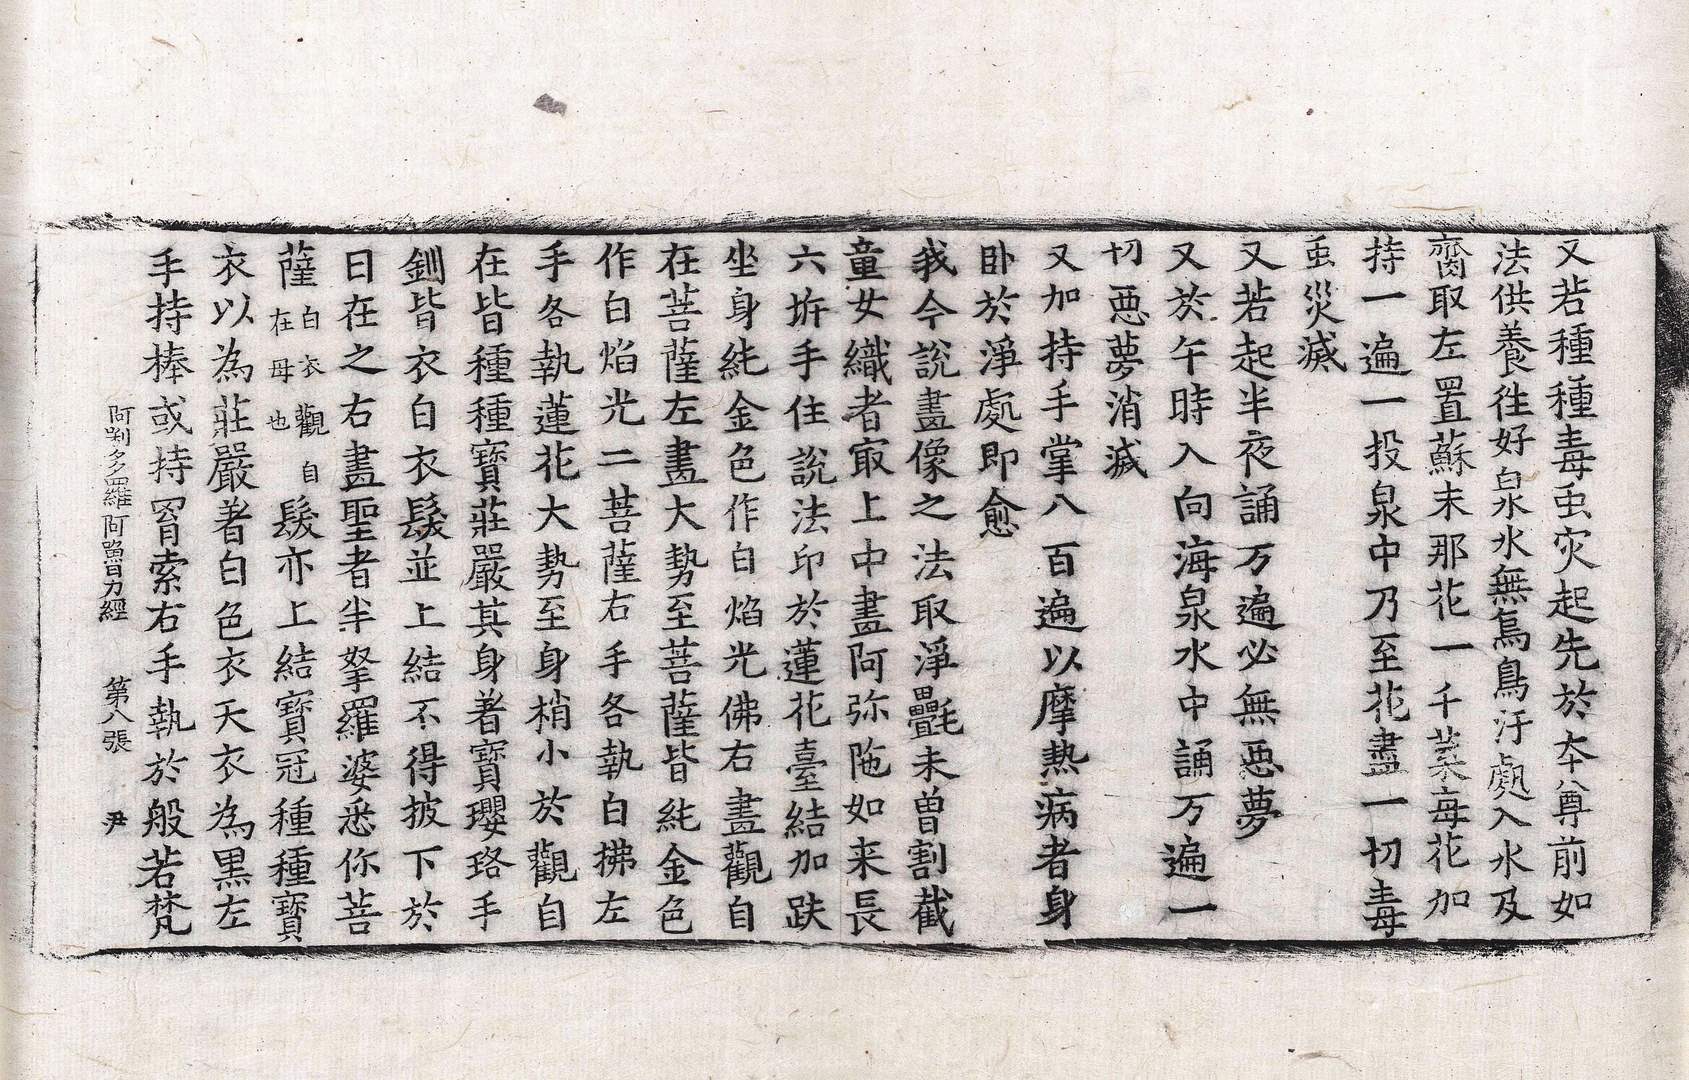 又若種種毒虫灾起先於夲尊前如
法供養徃好泉水無鳥鳥汙處入水及
齎取左置蘇末那花一千葉每花加
持一遍一投泉中乃至花盡一切毒
䖝災滅
又若起半夜誦万遍必無惡夢
又於午時入向海泉水中誦万遍一
切惡夢消滅
又加持手掌八百遍以摩熱病者身
卧於淨處即愈
我今說畫像之法取淨㲲未曽割截
童女織者㝡上中畫阿弥陁如来長
六㭊手住說法印於蓮花臺結加趺
坐身純金色作白焰光佛右畫觀自
在菩薩左畫大勢至菩薩皆純金色
作白焰光二菩薩右手各執白拂左
手各執蓮花大勢至身梢小於觀自
在皆種種寶莊嚴其身著寶瓔珞手
釧皆衣白衣髮並上結不得披下於
日在之右畫聖者半拏羅婆悉你菩
薩白衣觀自在母也髮亦上結寶冠種種寶
衣以為莊嚴著白色衣天衣為黒左
手持棒或持罥索右手執於般若梵
阿唎多羅阿嚕力經 第八張 尹